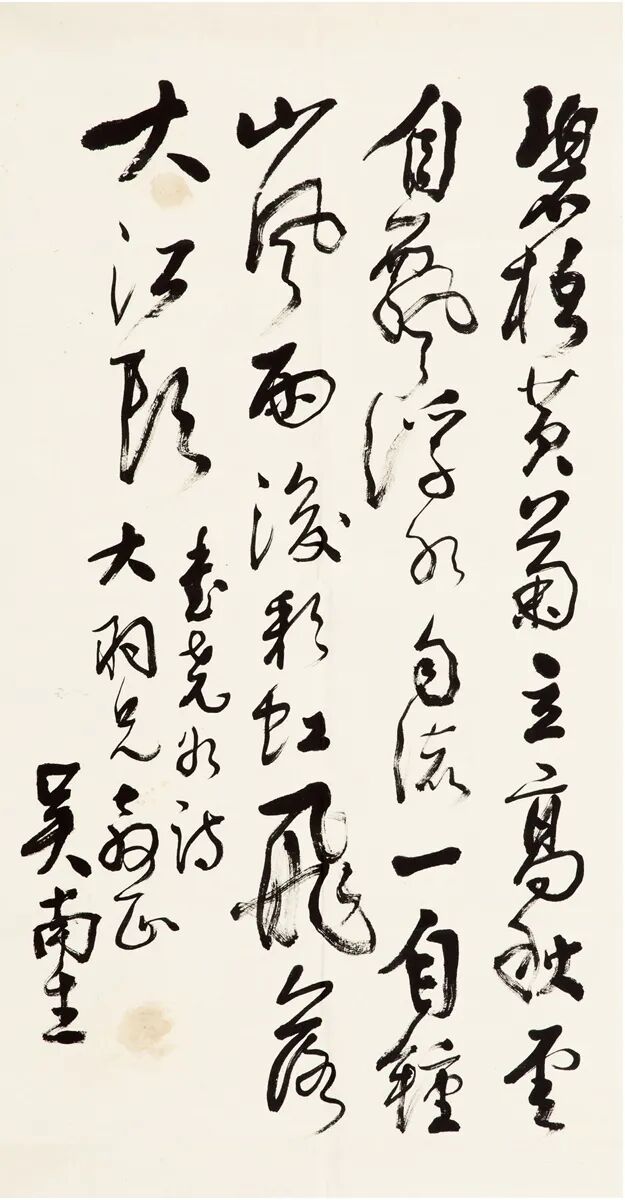 碧黄菊立高秋雲
自飄浮水自流一自鍾
山風雨後彩虹飛落
大江頭
書堯水詩
大羽兄教正
吴南生